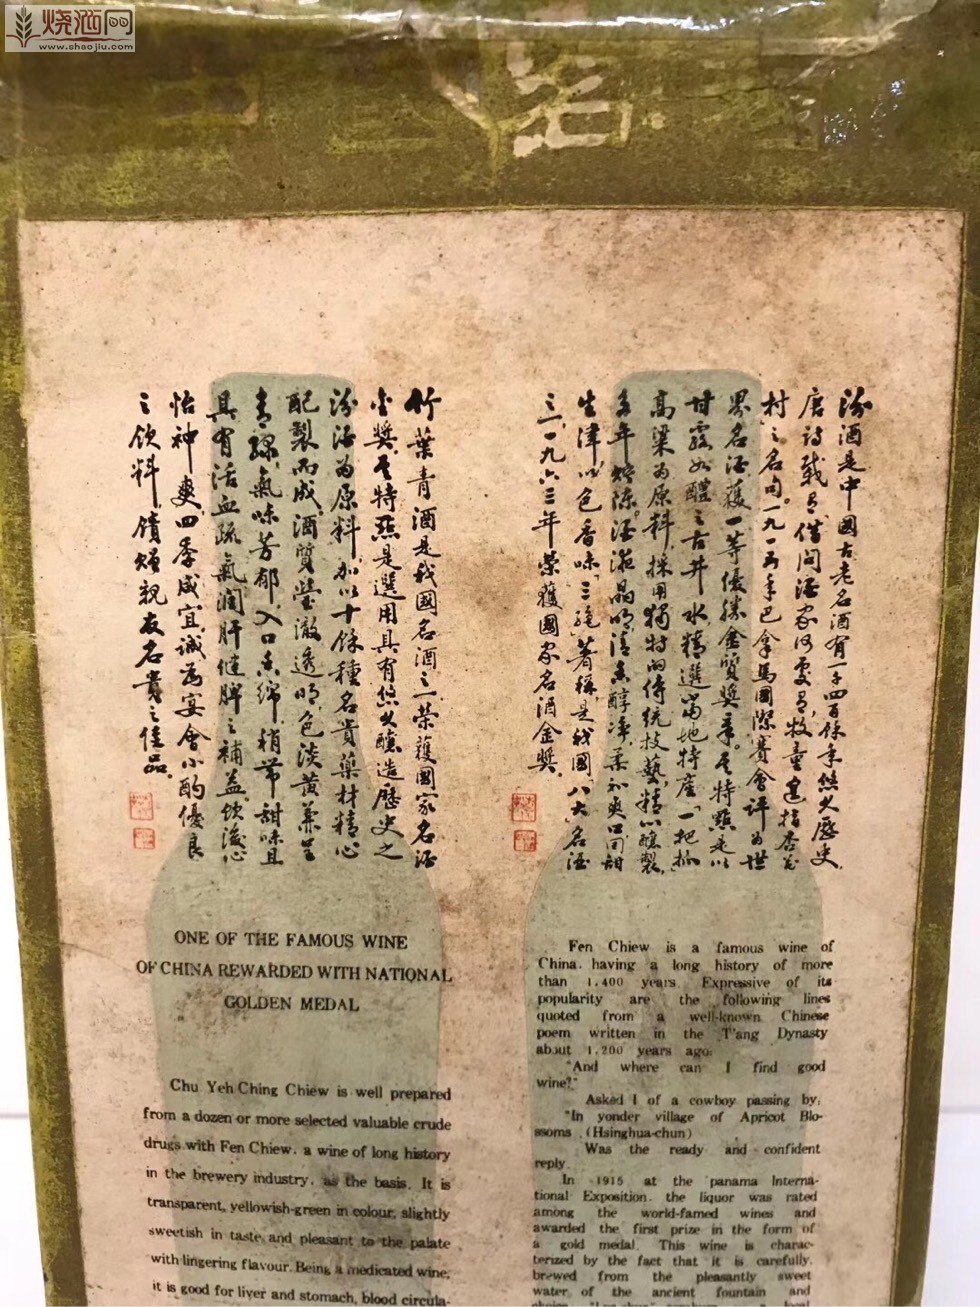 烧酒网
www.shaojiu.com
汾酒是中國古老名酒有一千四百餘年悠久歷史，
唐詩載有借問酒家何處有，牧童遙指杏花
村，之名句。一九一五年巴拿馬國際賽會評為世
界名酒獲一等優勝金質獎章。其特點是以
甘露如醴之古井水精選當地特產"一把抓"
高粱為原料，採用獨特的傳統技藝，精心釀製，
多年貯陳。酒液晶明，清香醇凈，柔和爽口，回甜
生津，以色香味"三絕"著稱，是我國"八大"名酒
之一，一九六三年榮獲國家名酒金獎。
竹葉青酒是我國名酒之一榮獲國家名酒
金獎，其特點是選用具有悠久釀造歷史之
汾酒為原料，加以十餘種名貴藥材精心
配製而成酒質瑩澈透明，色淡黃兼呈
青綠，氣味芳郁，入口香綿，稍帶甜味且
具有活血疏氣潤肝健脾之補益，飲後心
怡神爽，四季咸宜，誠為宴會小酌優良
之飲料，饋贈親友名貴之佳品。
ONE OF THE FAMOUS WINE
OF CHINA REWARDED WITH NATIONAL
GOLDEN MEDAL
Chu Yeh Ching Chiew is well prepared
from a dozen or more selected valuable crude
drugs with Fen Chiew, a wine of long history
in the brewery industry, as the basis. It is
transparent, yellowish-green in colour, slightly
sweetish in taste and pleasant to the palate
with lingering flavour. Being a medicated wine,
it is good for liver and stomach, blood circula-
Fen Chiew is a famous wine of
China, having a long history of more
than 1,400 years. Expressive of its
popularity are the following lines
quoted from a well-known Chinese
poem written in the T'ang Dynasty
about 1,200 years ago:
"And where can I find good
wine?"
Asked I of a cowboy passing by;
"In yonder village of Apricot Blo-
ssoms (Hsinghua-chun)
Was the ready and confident
reply.
In 1915 at the panama Interna-
tional Exposition, the liquor was rated
among the world-famed wines and
awarded the first prize in the form of
a gold medal. This wine is charac-
terized by the fact that it is carefully
brewed from the pleasantly sweet
water of the ancient fountain and